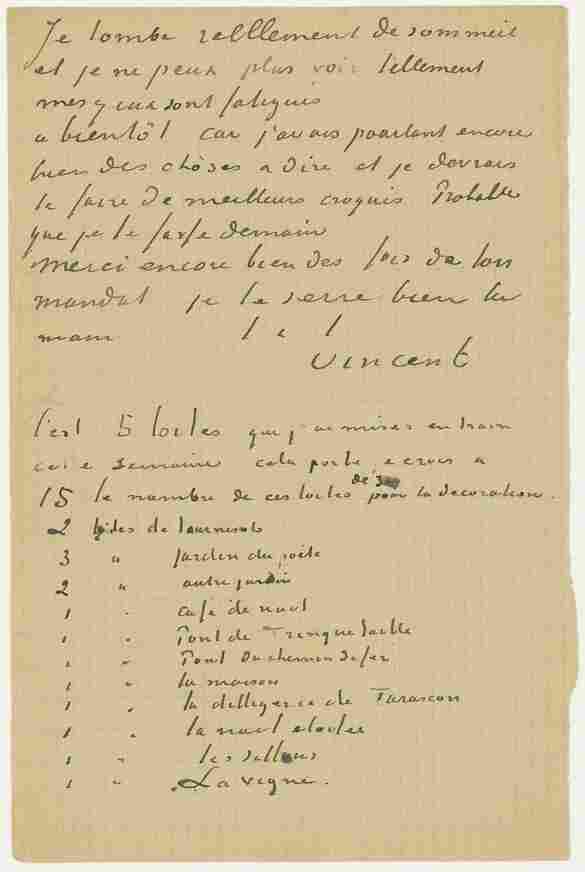 Je tombe tellement de sommeil
et je ne peux plus voir tellement
mes yeux sont fatigués
a bientôt car j'avais pourtant encore
bien des choses a dire et je devrais
te faire de meilleurs croquis Probable
que je le fasse demain
Merci encore bien des fois de ton
mandat je te serre bien la
main t. à t
Vincent
C'est 5 toiles que j'ai mises en train
cette semaine cela porte je crois a
15 le nombre de ces toiles de 30 pour la decoration.
2 toiles de tournesols
3 " jardin du poète
2 " autre jardin
1 " café de nuit
1 " Pont de Trinquetaille
1 " Pont du chemin de fer
1 " la maison
1 " la dilligence de Tarascon
1 " la nuit etoilée
1 " les sillons
1 " La vigne.